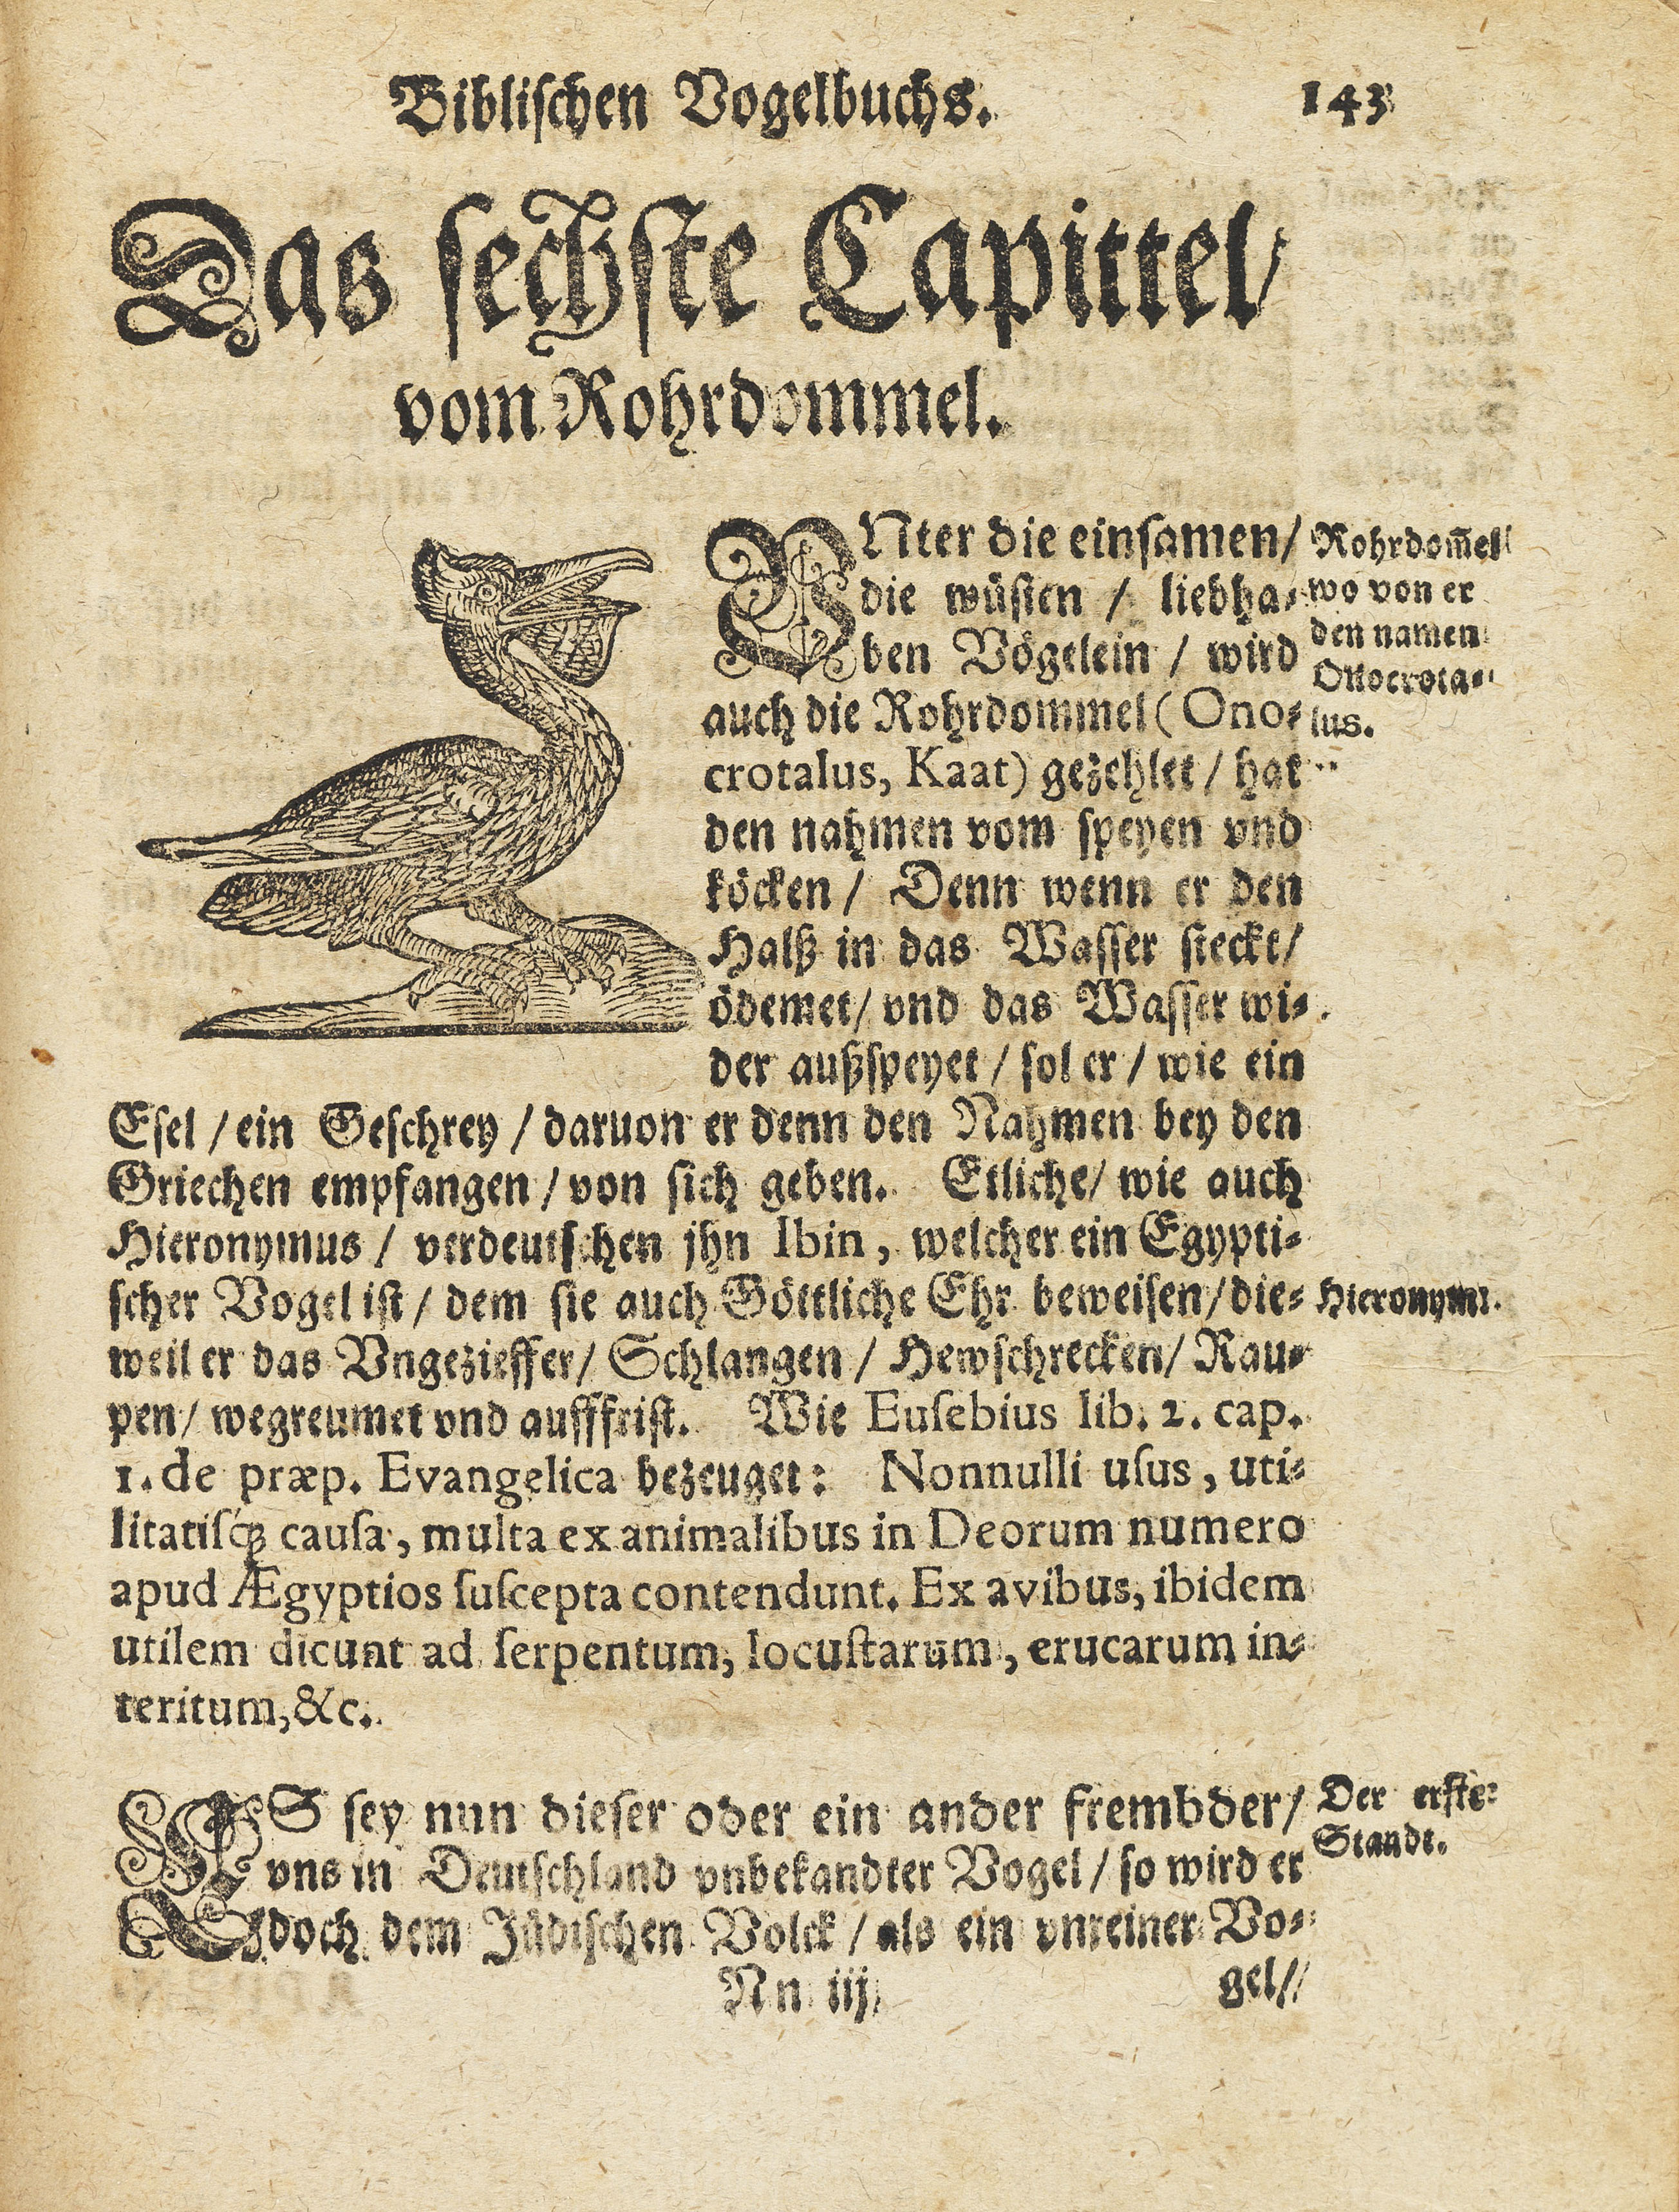 Biblischen Vogelbuchs. 143
Das sechste Capittel/
vom Rohrdommel.
VNter die einsamen/
die wüsten / liebha-
ben Vögelein / wird
auch die Rohrdommel (Ono-
crotalus, Kaat) gezehlet / hat
den nahmen vom speyen vnd
köcken / Denn wenn er den
Halß in das Wasser steckt/
ödemet/ vnd das Wasser wi-
der außspeyet / sol er / wie ein
Esel / ein Geschrey / daruon er denn den Nahmen bey den
Griechen empfangen / von sich geben. Etliche/ wie auch
Hieronymus / verdeutschen jhn Ibin, welcher ein Egypti-
scher Vogel ist / dem sie auch Göttliche Ehr beweisen/ die-
weil er das Vngezieffer/ Schlangen / Hewschrecken/ Rau-
pen/ wegreumet vnd aufffrist. Wie Euſebius lib. 2. cap.
1. de præp. Evangelica bezeuget: Nonnulli uſus, uti-
litatiſq́; cauſa, multa ex animalibus in Deorum numero
apud Ægyptios ſuſcepta contendunt. Ex avibus, ibidem
utilem dicunt ad ſerpentum, locuſtarum, erucarum in-
teritum, &c.
Rohrdom̃el
wo von er
den namen
Onocrota-
lus.
Hieronymi.
ES sey nun dieser oder ein ander frembder/
vns in Deutschland vnbekandter Vogel / so wird er
doch dem Jüdischen Volck / als ein vnreiner Vo-
Der erste
Standt.
Nn iij gel/